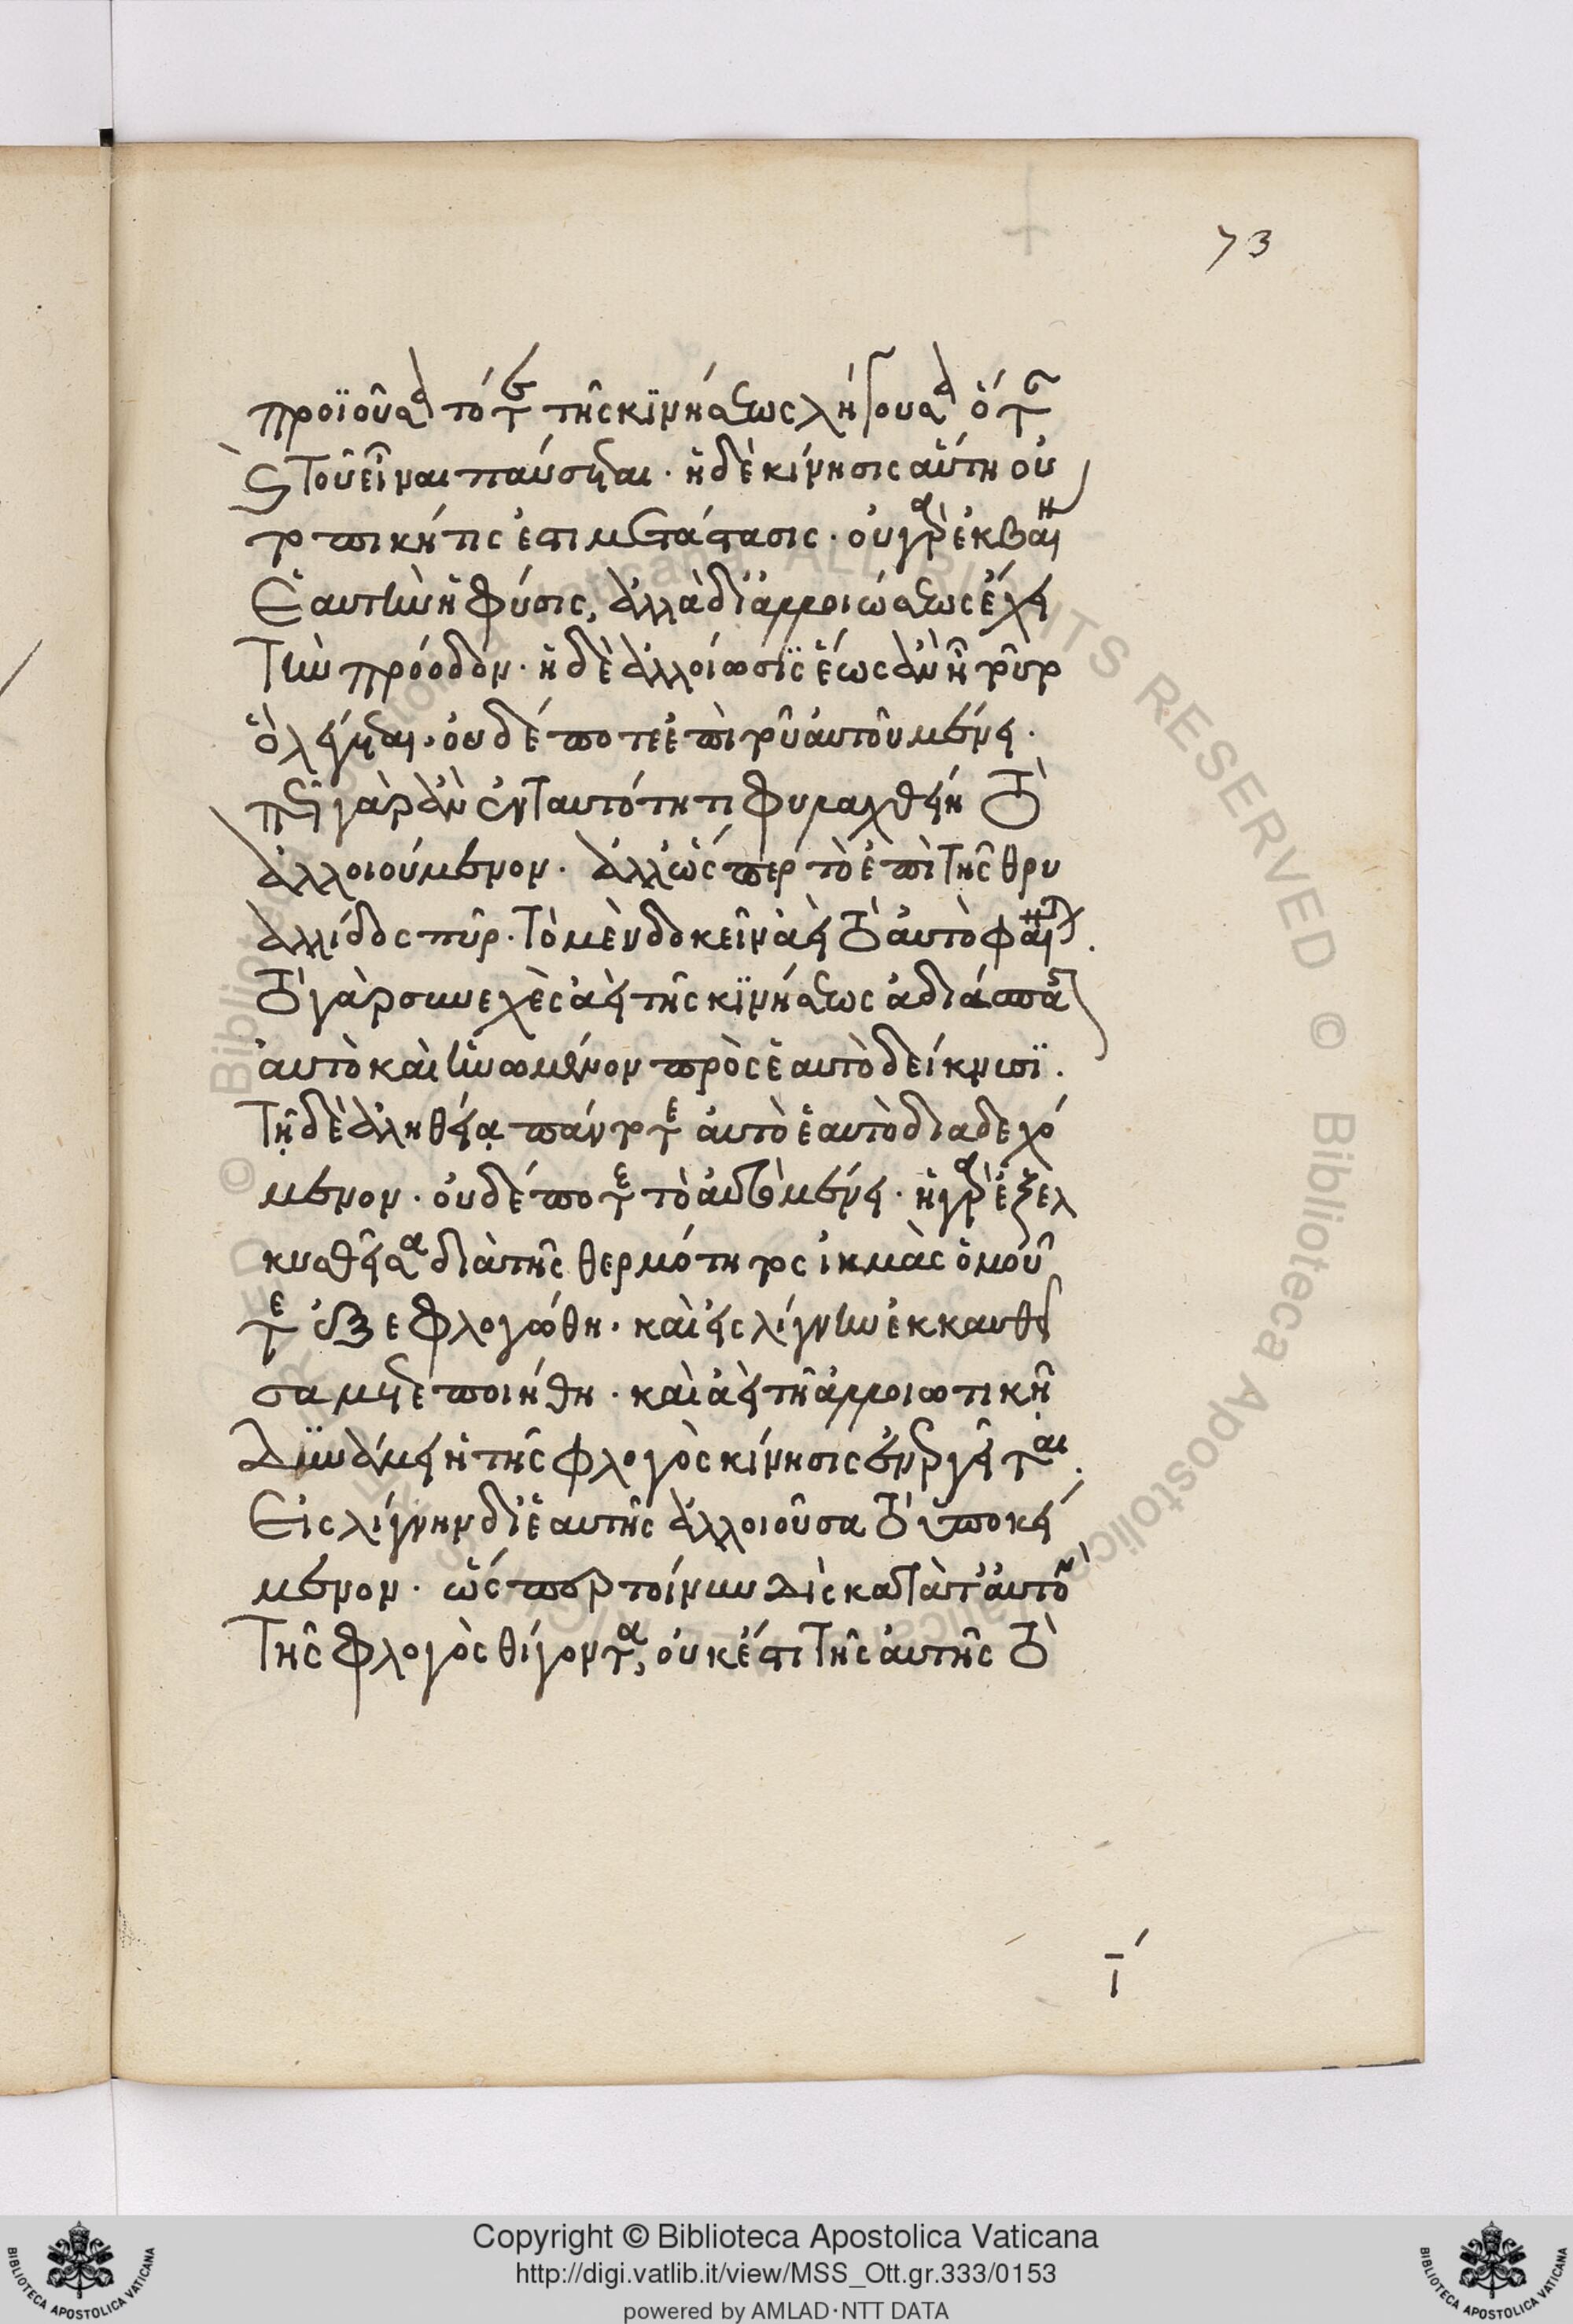 προϊοῦσα τότε τῆς κϊνήσεως λήγουσα ὅταν
καὶ τοῦ εἶναι παύσηται· ἡ δὲ κίνησις αὕτη οὐ
τοπική τις ἐστι μετάστασις· οὐ γὰρ ἐκβαίνει
ἑαυτὴν ἡ φύσις, ἀλλὰ δι᾽ ἀλλοιώσεως ἔχει
τὴν πρόοδον· ἡ δὲ ἀλλοίωσϊς ἕως ἂν ᾖ τοῦτο
ὃ λέγεται· οὐδέποτε ἐπὶ τοῦ αὐτοῦ μένει·
πῶς γὰρ ἂν ἐν ταυτότητι φυλαχθείη τὸ
ἀλλοιούμενον· ἀλλ᾽ ὥσπερ τὸ ἐπὶ τῆς θρυ
αλλίδος πῦρ· τὸ μὲν δοκεῖν ἀεὶ τὸ αὐτὸ φαίνεται.
τὸ γὰρ συνεχὲς ἀεὶ τῆς κϊνήσεως ἀδιάσπαστον
αὐτὸ καὶ ἡνωμένον πρὸς ἑαυτὸ δείκνυσϊ.
τῇ δὲ ἀληθείᾳ πάντοτε αὐτὸ ἑαυτὸ διαδεχό
μενον· οὐδέποτε τὸ αὐτὸ μένει· ἡ γὰρ ἐξελ
κυσθεῖσα διὰ τῆς θερμότητος ἰκμὰς ὁμοῦ
τε ἐξεφλογώθη· καὶ εἰς λίγνὺν ἐκκαυθεῖ
σα μετεποιήθη· καὶ ἀεὶ τῇ ἀλλοιωτικῇ
δϋνάμει ἡ τῆς φλογὸς κίνησις ἐνεργεῖται.
εἰς λίγνὴν δι᾽ ἑαυτῆς ἀλλοιοῦσα τὸ ὑποκεί
μενον· ὥσπερ τοίνυν δὶς κατὰ ταὐτὸν
τῆς φλογὸς θίγοντα, οὐκ ἔστι τῆς αὐτῆς τὸ
ι´
73
Copyright © Biblioteca Apostolica Vaticana
http://digi.vatlib.it/view/MSS_Ott.gr.333/0153
powered by AMLAD·NTT DATA